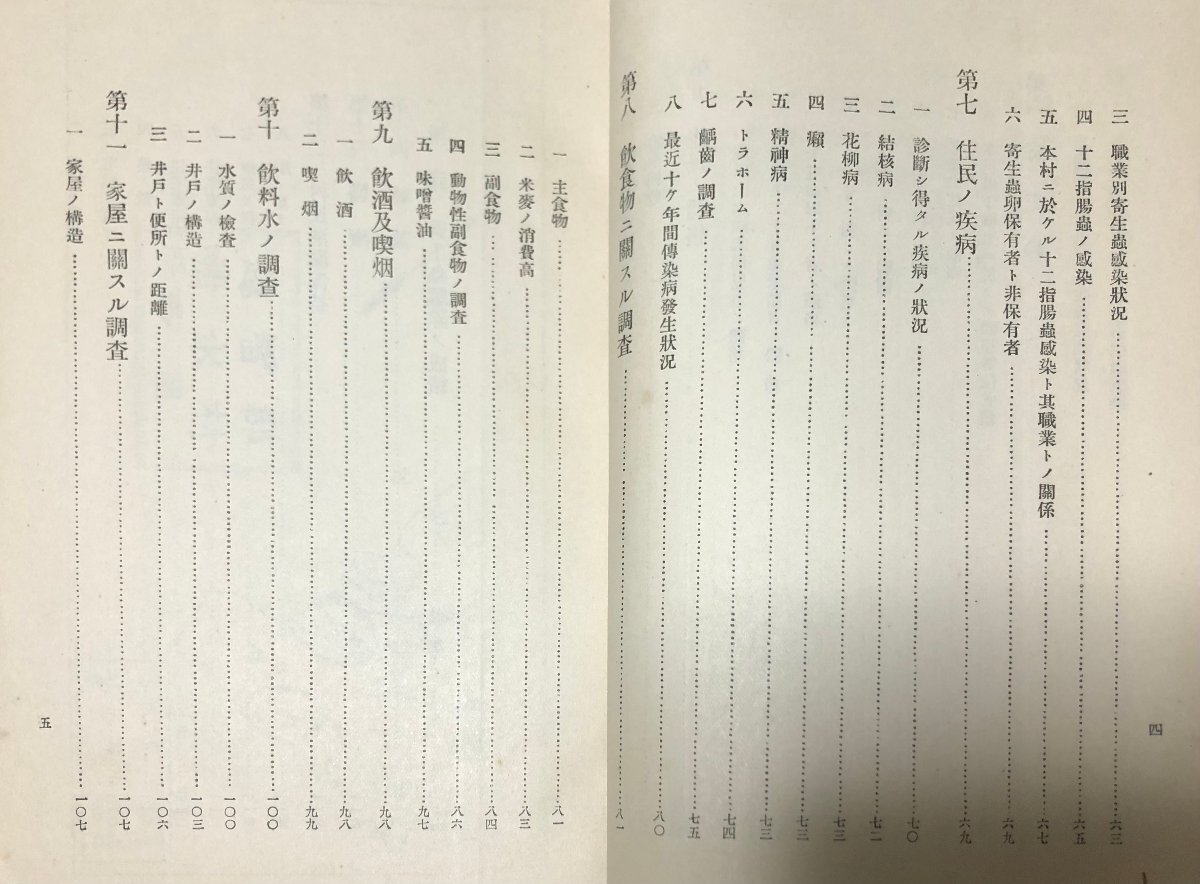 三 職業別寄生蟲感染狀況……六三
四 十二指腸蟲ノ感染……六五
五 本村ニ於ケル十二指腸蟲感染ト其職業トノ關係……六七
六 寄生蟲卵保有者ト非保有者……六九
第七 住民ノ疾病……六九
一 診斷シ得タル疾病ノ狀況……七〇
二 結核病……七二
三 花柳病……七三
四 癩……七三
五 精神病……七三
六 トラホーム……七四
七 齲齒ノ調査……七五
八 最近十ケ年間傳染病發生狀況……八〇
第八 飮食物ニ關スル調査……八一
四
一 主食物……八一
二 米麥ノ消費高……八三
三 副食物……八四
四 動物性副食物ノ調査……八六
五 味噌醬油……九七
第九 飮酒及喫烟……九八
一 飮酒……九八
二 喫烟……九九
第十 飮料水ノ調査……一〇〇
一 水質ノ檢査……一〇〇
二 井戸ノ構造……一〇三
三 井戸ト便所トノ距離……一〇六
第十一 家屋ニ關スル調査……一〇七
一 家屋ノ構造……一〇七
五